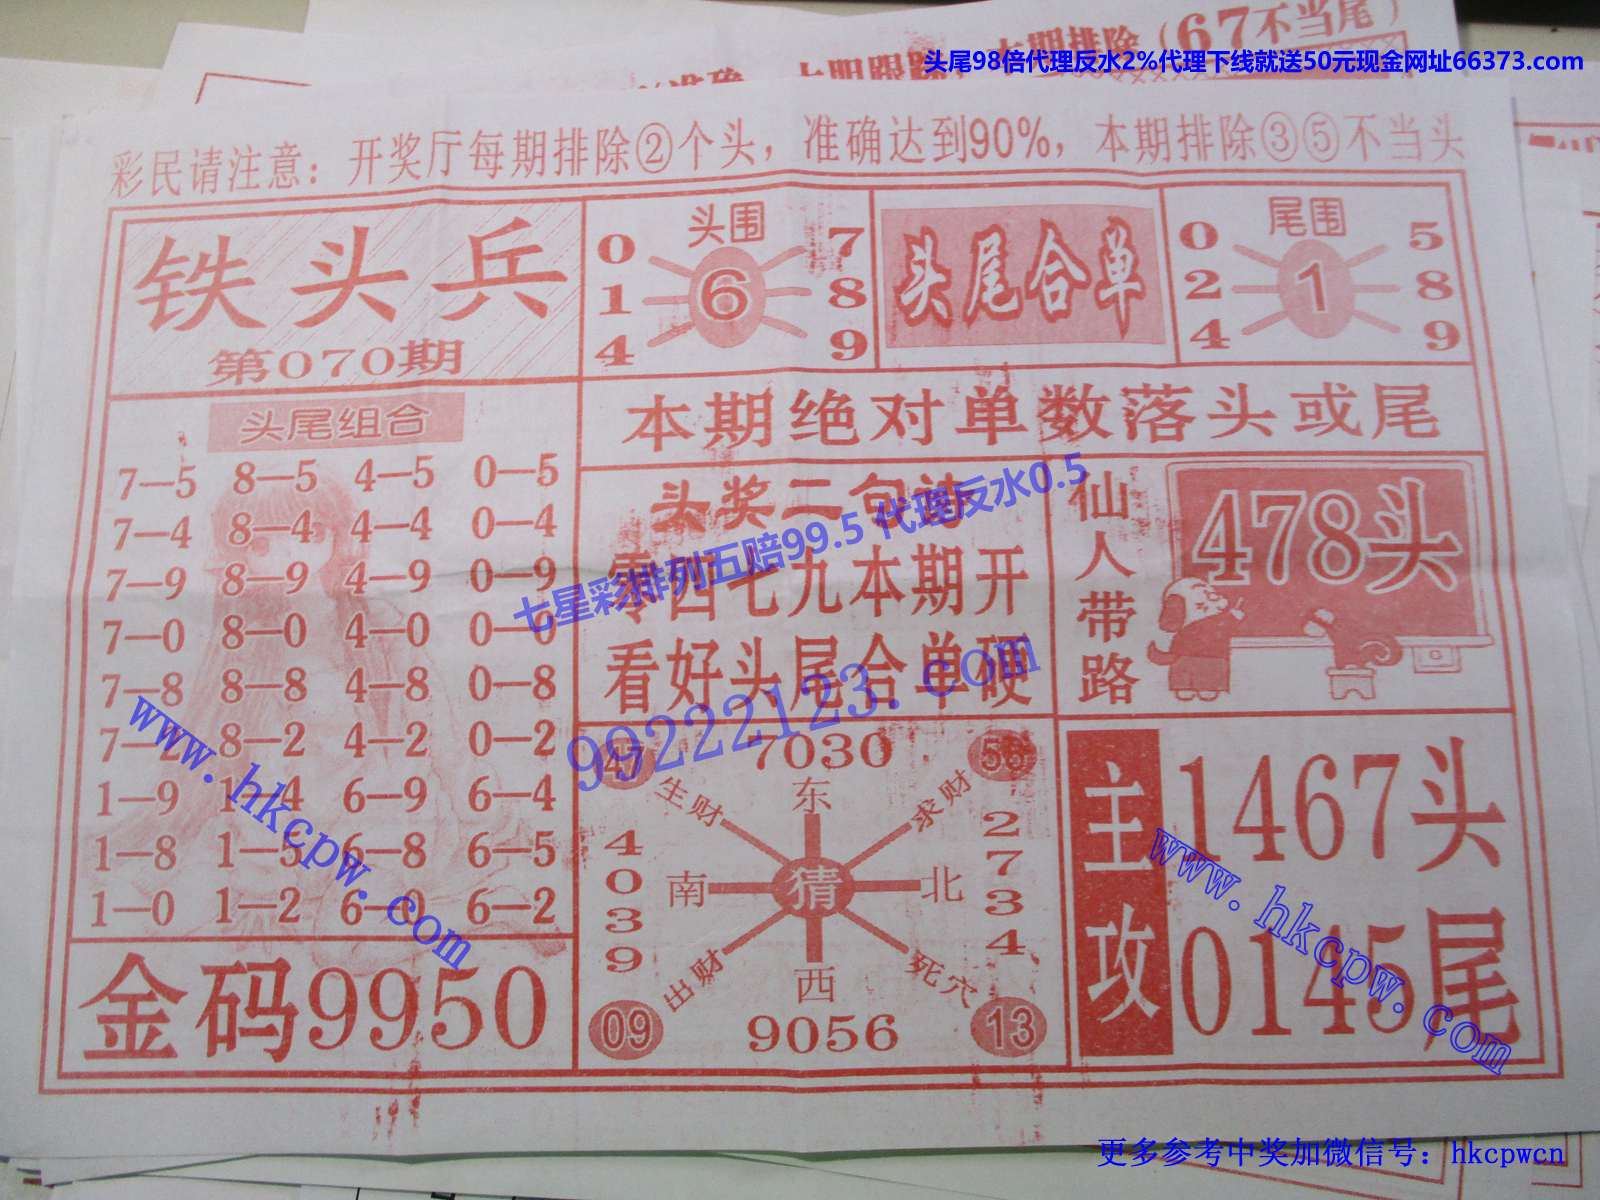 本期排除（67不当尾）
头尾98倍代理反水2%代理下线就送50元现金网址66373.com
彩民请注意：开奖厅每期排除②个头，准确达到90%，本期排除③⑤不当头
铁头兵
第070期
头围
0 7
1 6 8
4 9
头尾合单
尾围
0 5
2 1 8
4 9
本期绝对单数落头或尾
头尾组合
7—5 8—5 4—5 0—5
7—4 8—4 4—4 0—4
7—9 8—9 4—9 0—9
7—0 8—0 4—0 0—0
7—8 8—8 4—8 0—8
7—2 8—2 4—2 0—2
1—9 1—4 6—9 6—4
1—8 1—5 6—8 6—5
1—0 1—2 6—0 6—2
金码9950
头奖二句诗
零四七九本期开
看好头尾合单硬
七星彩排列五赔99.5 代理反水0.5
99222123.com
仙人带路
478头
47 7030 56
生财 东 求财
4039 南 猜 北 2734
出财 西 死穴
09 9056 13
主攻
1467头
0145尾
www.hkcpw.com
www.hkcpw.com
更多参考中奖加微信号：hkcpwcn